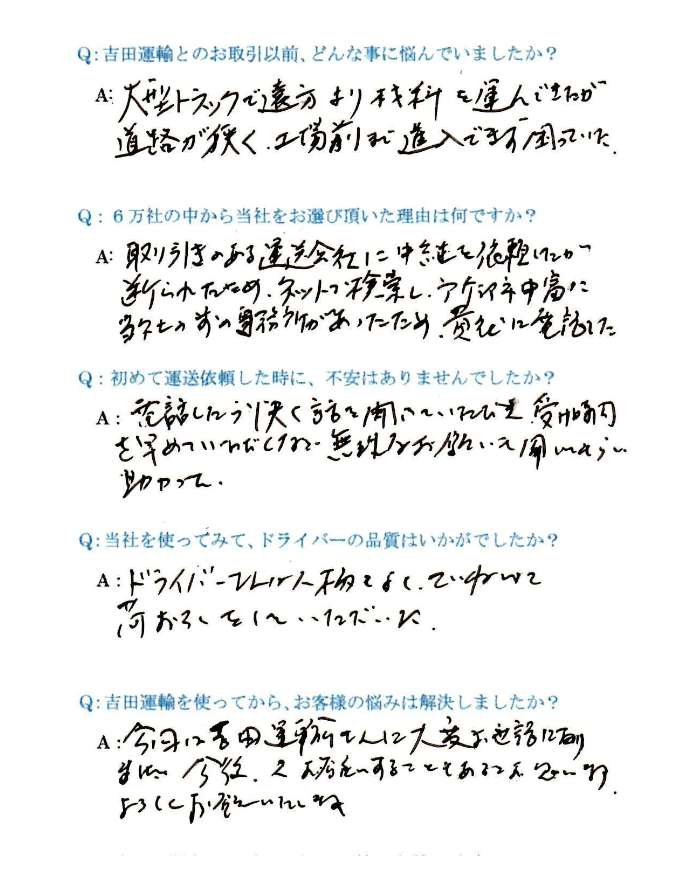 Q:吉田運輸とのお取引以前、どんな事に悩んでいましたか?
A: 大型トラックで遠方より材料を運んできたが
道路が狭く、工場前まで進入できず困っていた。
Q:6万社の中から当社をお選び頂いた理由は何ですか?
A: 取り引きのある運送会社に中継を依頼したが
断られたため、ネットで検索し、
当社の 事務所があったため、貴社に電話した
Q:初めて運送依頼した時に、不安はありませんでしたか?
A: 電話したら快く話を聞いていただき 受け時間
を早めていただくなど無理なお願いも聞いてもらい
助かった。
Q:当社を使ってみて、ドライバーの品質はいかがでしたか?
A: ドライバーさんは人柄もよく、ていねいに
荷おろしをしていただいた。
Q:吉田運輸を使ってから、お客様の悩みは解決しましたか?
A: 今回は吉田運輸さんに大変お世話になり
ました 今後、又お願いすることもあると思います
よろしくお願いいたします